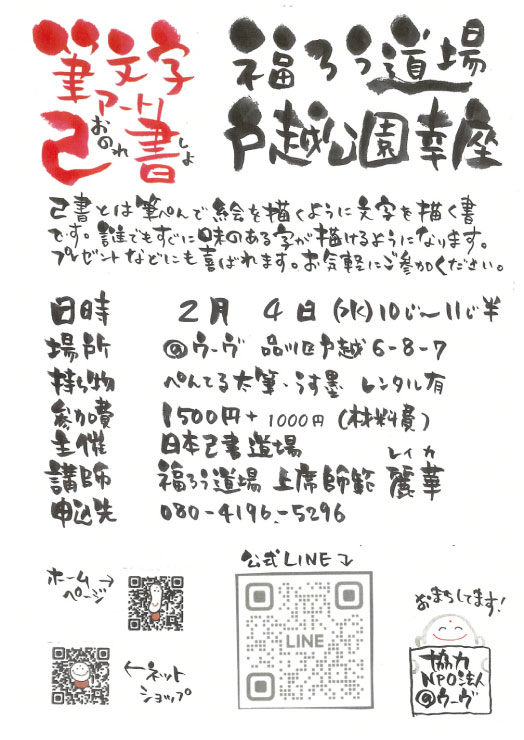 筆文字
アート!
己書
おのれ
しょ
福ろう道場
戸越公園幸座
己書とは筆ぺんで絵を描くように文字を描く書
です。誰でもすぐに味のある字が描けるようになります。
プレゼントなどにも喜ばれます。お気軽にご参加ください。
日時 2月 4日(水)10じ〜11じ半
場所 @ウーヴ 品川区戸越6-8-7
持ち物 ぺんてる太筆・うす墨 レンタル有
参加費 1500円+1000円(材料費)
主催 日本己書道場
レイカ
講師 福ろう道場 上席師範 麗華
申込先 080-4196-5296
公式LINE
ホーム
ページ
LINE
ネット
ショップ
おまちしてます!
協力
NPO法人
@ウーヴ